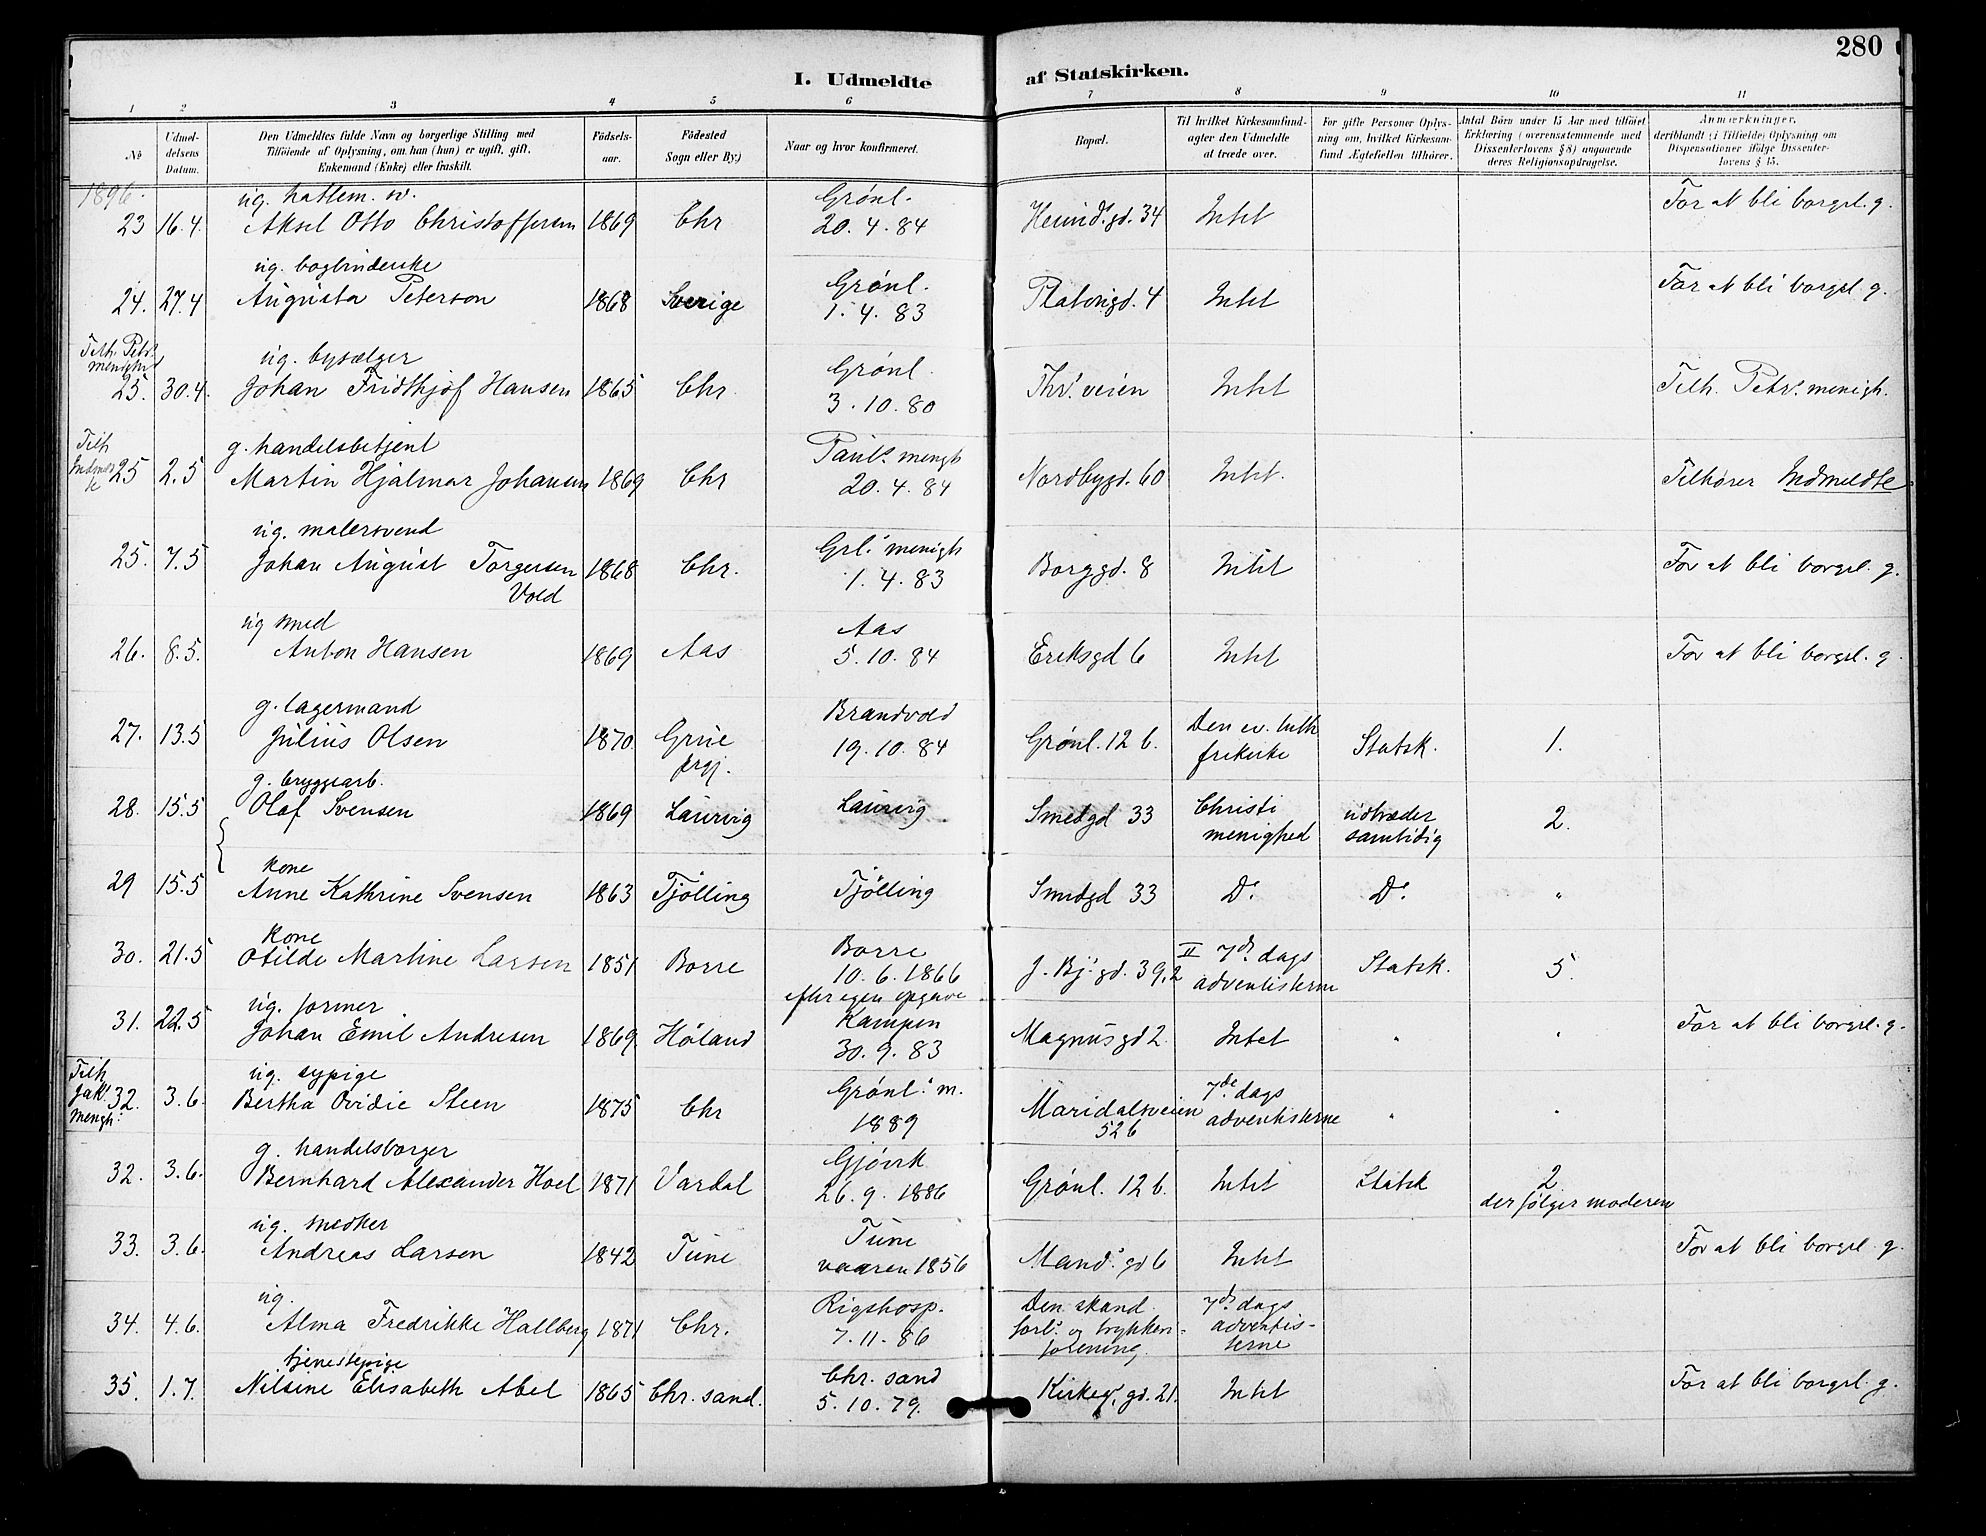 280
I. Udmeldte af Statskirken.
1 2 3 4 5 6 7 8 9 10 11
No
Udmel-
delsens
Datum.
Den Udmeldtes fulde Navn og borgerlige Stilling med
Tilføiende af Oplysning, om han (hun) er ugift, gift,
Enkemand (Enke) eller fraskilt.
Födsels-
aar.
Födested
Sogn eller By.)
Naar og hvor konfirmeret.
Bopæl.
Til hvilket Kirkesamfund-
agter den Udmeldte
at træde over.
For gifte Personer Oplys-
ning om, hvilket Kirkesam-
fund Ægtefællen tilhörer.
Antal Börn under 15 Aar med tilföiet
Erklæring (overensstemmende med
Dissenterlovens § 8) angaaende
deres Religionsopdragelse.
Anmærkninger,
deriblandt (i Tilfælde) Oplysning om
Dispensationer ifölge Dissenter-
lovens § 15.
1896.
ug. hattem. sv. Grønl. For at bli borgerl. g.
23 16.4. Aksel Otto Christoffersen 1869 Chr 20.4.84 Heimd. gd. 34 Intet
ug. bogbinderske Grønl. For at bli borgerl. g.
24. 27.4 Augusta Peterson 1868 Sverige 1.4.83 Platousgd. 4 Intet
Tilh. Petr.
menighed
ug. bysælger Grønl.
25. 30.4. Johan Fridthjof Hansen 1865 Chr 3.10.80 Thv. veien Intet Tilh. Petr. menigh.
Tilh
Indmeldte
g. handelsbetjent Paul. mengh
25 2.5 Martin Hjalmar Johansen 1869 Chr 20.4.84 Nordbygd. 60 Intet. Tilhører Indmeldte
ug. malersvend Grl. menigh
25. 7.5 Johan August Torgersen 1868 Chr. 1.4.83 Borggd. 8 Intet For at bli borgerl. g.
Vold
ug smed Aas
26. 8.5. Anton Hansen 1869 Aas 5.10.84 Eriksgd 6 Intet For at bli borgerl. g.
g. lagermand Brandvold Den ev. luth
27. 13.5 Julius Olsen 1870 Grue 19.10.84 Grønl. 12 b. frikirke Statsk. 1.
prgj.
g. bryggearb.
28. 15.5 Olaf Svensen 1869 Laurvig Laurvig Smedgd 33 Christi udtræder 2.
menighed samtidig
kone
29 15.5 Anne Kathrine Svensen 1863 Tjölling Tjölling Smedgd 33 Do Do "
kone Borre II 7de dags
30. 21.5 Otilde Martine Larsen 1851 Borre 10.6.1866 J. Bj. gd. 39,2 adventisterne Statsk. 5.
efter egen opgave
ug. former Kampen For at bli borgerl. g.
31. 22.5 Johan Emil Andresen 1869 Høland 30.9.83 Magnusgd 2. Intet " "
Tilh
Jak.
mengh.
ug. sypige Grønl. m. 7de dags
32. 3.6. Bertha Ovidie Steen 1875 Chr 1889 Maridalsveien adventisterne " "
52 b
g. handelsborger Gjøvik 2
32. 3.6. Bernhard Alexander Hoel 1871 Vardal 26.9.1886 Grønl. 12 b. Intet Statsk der følger moderen
ug. snedker Tune For at bli borgerl. g.
33. 3.6. Andreas Larsen 1842 Tune vaaren 1856 Mand. gd 6 Intet
ug. Rigshosp. Den skand. 7de dags
34. 4.6. Alma Fredrikke Hallberg 1871 Chr. 7.11.86 forl. og trykkeri- adventis-
forening terne
tjenestepige Chr. sand For at bli borgerl. g.
35. 1.7. Nilsine Elisabeth Abel 1865 Chr. sand. 5.10.79. Kirkeg. gd. 21. Intet